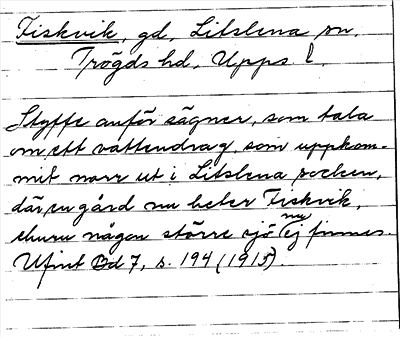 Fiskvik, gd, Litslena sn,
Trögds hd, Upps. l.
Styffe anför sägner, som tala
om ett vattendrag, som uppkom-
mit norr ut i Litslena socken,
där en gård nu heter Fiskvik,
churu någon större sjö nu ej finnes.
Ufint Bd 7, s. 194 (1915).